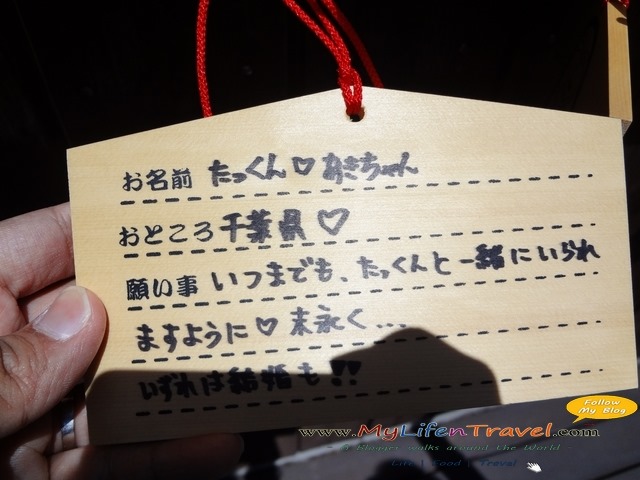 お名前 たっくん♡あきちゃん
おところ 千葉県♡
願い事 いつまでも、たっくんと一緒にいられ
ますように♡末永く...
いずれは結婚も!!
Follow
My Blog
www.MyLifenTravel.com
A Blogger walks around the World
Life | Food | Travel